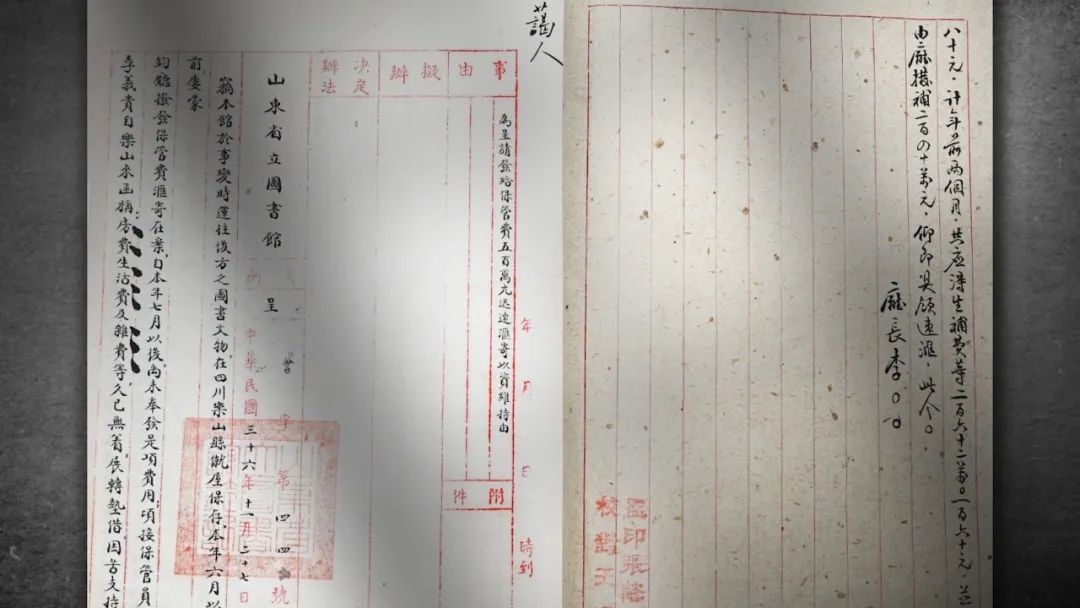 八十元，计年前两個月，共应得生補費等二百六十二萬〇一百六十元，並
由廳撥補二百四十萬元，仰即具領速滙，此令。
廳長李〇〇
監印張
校對王
藹人
事由擬辦決定辦法
為呈請發給保管費五百萬元迅速滙寄以資維持由
附件
年月日時到
山東省立圖書館
呈
字第四四號
中華民國三十六年十一月二十七日
竊本館於事變時運往後方之圖書文物，在四川樂山縣僦屋保存，本年六月以
前屢蒙
鈞廳撥發保管費滙寄在案，自本年七月以後尚未奉發是項費用，頃接保管員
李義貴自樂山來函稱房費生活費及雜費等，久已無着，展轉墊借，困苦支持